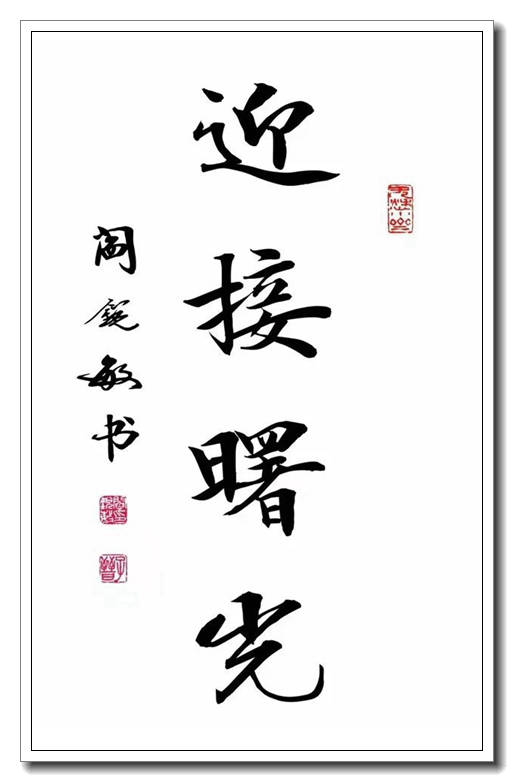 迎接曙光
阎锐敏书